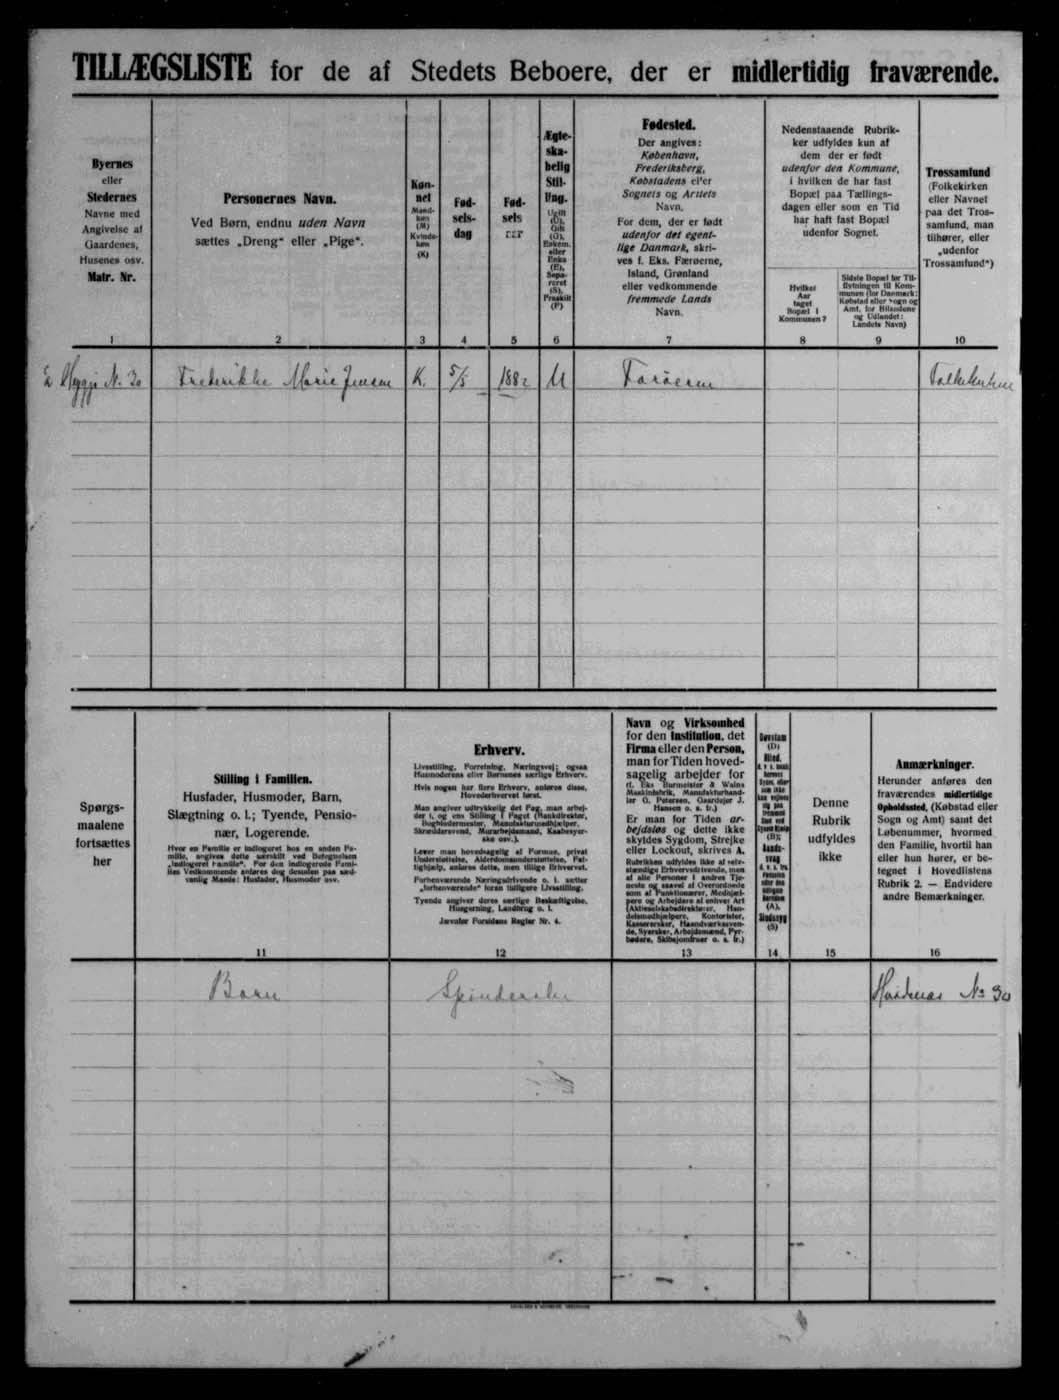 TILLÆGSLISTE for de af Stedets Beboere, der er midlertidig fraværende.
Byernes
eller
Stedernes
Navne med
Angivelse af
Gaardenes,
Husenes osv.
Matr. Nr.
1
Personernes Navn.
Ved Børn, endnu uden Navn
sættes „Dreng“ eller „Pige“.
2
Køn-
net
Mand-
køn
(M)
Kvinde-
køn
(K)
3
Fød-
sels-
dag
4
Fød-
sels
5
Ægte-
ska-
belig
Stil-
ling.
Ugift
(U),
Gift
(G),
Enkem.
eller
Enke
(E),
Sepa-
reret
(S),
Fraskilt
(F)
6
Fødested.
Der angives:
København,
Frederiksberg,
Købstadens eller
Sognets og Amtets
Navn.
For dem, der er født
udenfor det egent-
lige Danmark, skri-
ves f. Eks. Færøerne,
Island, Grønland
eller vedkommende
fremmede Lands
Navn.
7
Nedenstaaende Rubrik-
ker udfyldes kun af
dem der er født
udenfor den Kommune,
i hvilken de har fast
Bopæl paa Tællings-
dagen eller som en Tid
har haft fast Bopæl
udenfor Sognet.
Hvilket
Aar
taget
Bopæl i
Kommunen?
8
Sidste Bopæl før Til-
flytningen til Kom-
munen (for Danmark:
Købstad eller Sogn og
Amt, for Bilandene
og Udlandet:
Landets Navn)
9
Trossamfund
(Folkekirken
eller Navnet
paa det Tros-
samfund, man
tilhører, eller
„udenfor
Trossamfund“)
10
Hyggi N. 30 Frederikke Marie Jensen K. 5/5 1882 U Færøerne Folkekirken
Spørgs-
maalene
fortsættes
her
Stilling i Familien.
Husfader, Husmoder, Barn,
Slægtning o. l.; Tyende, Pensio-
nær, Logerende.
Hvor en Familie er indlogeret hos en anden Fa-
milie, angives dette særskilt ved Betegnelsen
„indlogeret Familie“. For den indlogerede Fami-
lies Vedkommende anføres dog desuden paa sæd-
vanlig Maade: Husfader, Husmoder osv.
11
Erhverv.
Livsstilling, Forretning, Næringsvej; ogsaa
Husmoderens eller Børnenes særlige Erhverv.
Hvis nogen har flere Erhverv, anføres disse,
Hovederhvervet først.
Man angiver udtrykkelig det Fag, man arbej-
der i, og ens Stilling i Faget (Bankdirektør,
Bogbindermester, Manufakturmedhjælper,
Skræddersvend, Murarbejdsmand, Kaabesyer-
ske osv.).
Lever man hovedsagelig af Formue, privat
Understøttelse, Alderdomsunderstøttelse, Fat-
tighjælp, anføres dette, men tillige Erhvervet.
Forhenværende Næringsdrivende o. l. sætter
„forhenværende“ foran tidligere Livsstilling.
Tyende angiver deres særlige Beskæftigelse,
Husgerning, Landbrug o. l.
Jævnfør Forsidens Regler Nr. 4.
12
Navn og Virksomhed
for den Institution, det
Firma eller den Person,
man for Tiden hoved-
sagelig arbejder for
(f. Eks Burmeister & Wains
Maskinfabrik, Manufakturhand-
ler G. Petersen, Gaardejer J.
Hansen o. s. fr.)
Er man for Tiden ar-
bejdsløs og dette ikke
skyldes Sygdom, Strejke
eller Lockout, skrives A.
Rubrikken udfyldes ikke af selv-
stændige Erhvervsdrivende, men
af alle Personer i andres Tje-
neste og saavel af Overordnede
som af Funktionærer, Medhjæl-
pere og Arbejdere af enhver Art
(Aktieselskabsdirektører, Han-
delsmedhjælpere, Kontorister,
Kassererske, Haandværkssven-
de, Syersker, Arbejdsmænd, Fyr-
bødere, Skibsjomfruer o. s. fr.)
13
Døvstum
(D)
Blind,
(B);
Aands-
svag
(A),
Sindssyg
(S)
14
Denne
Rubrik
udfyldes
ikke
15
Anmærkninger.
Herunder anføres den
fraværendes midlertidige
Opholdssted, (Købstad eller
Sogn og Amt) samt det
Løbenummer, hvormed
den Familie, hvortil han
eller hun hører, er be-
tegnet i Hovedlistens
Rubrik 2. — Endvidere
andre Bemærkninger.
16
Barn Spinderske No 30